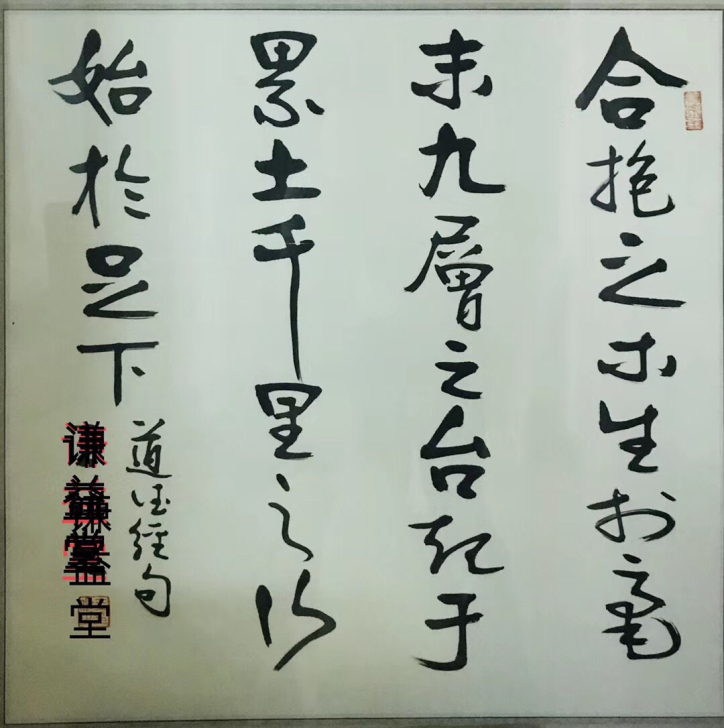 合抱之木生于毫
末九層之台起于
累土千里之行
始於足下
道德經句
谦益堂